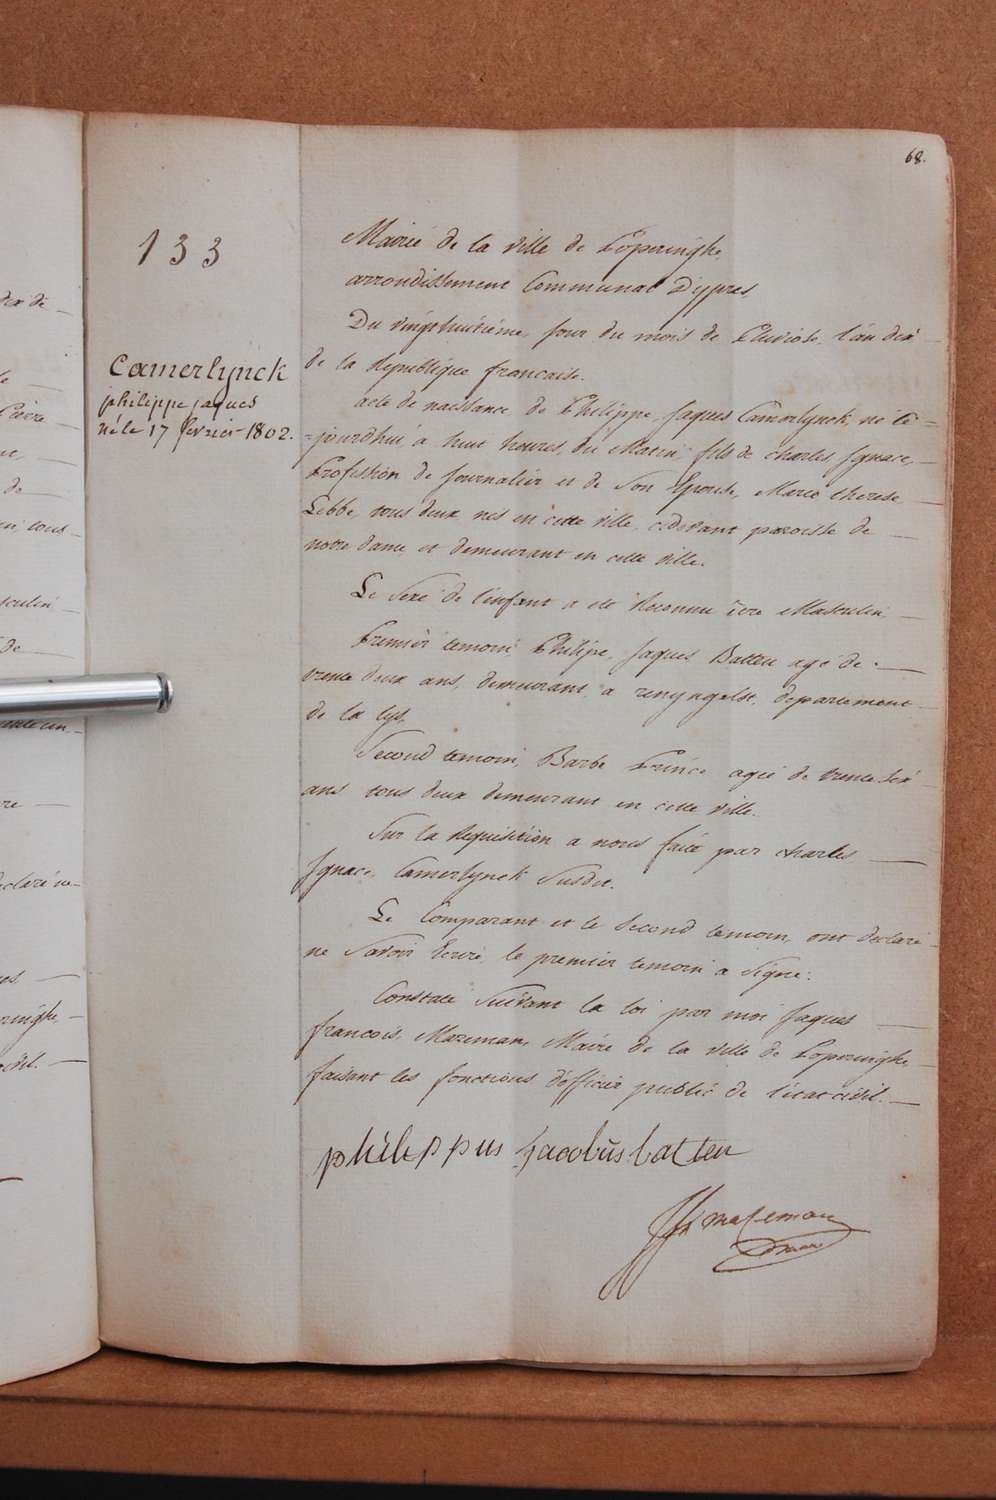 68.
133
Camerlynck
philippe jaques
né le 17 fevrier 1802.
Mairie de la ville de Poperinghe
arrondissement Communal d'ypres
Du vingthuitième jour du mois de Pluviose l'an dix
de la Republique francaise.
acte de naissance de Philippe Jaques Camerlynck, né ce=
=jourdhui a huit heures du Matin fils de charles Ignace,
Profession de journalier et de Son Epouse, Marie therese
Lebbe, tous deux nés en cette ville cidevant paroisse de
notre dame et demeurant en cette ville.
Le Sexe de l'enfant a été Reconnu être Masculin
Premier temoin Philipe Jaques Batteu agé de
trente deux ans, demeurant a renyngelst, departement
de la lys,
Second temoin, Barbe Prince agée de trente six
ans tous deux demeurant en cette ville.
Sur la Requisition a nous faite par charles
Ignace, Camerlynck Susdit.
Le Comparant et le Second temoin, ont declaré
ne Savoir Ecrire, le premier temoin a Signé.
Constaté Suivant la loi par moi Jaques
francois, Mazeman, Maire de la ville de Poperinghe,
faisant les fonctions d'officier public de l'état civil.
philippus Jacobus batteu
JF mazeman
maire